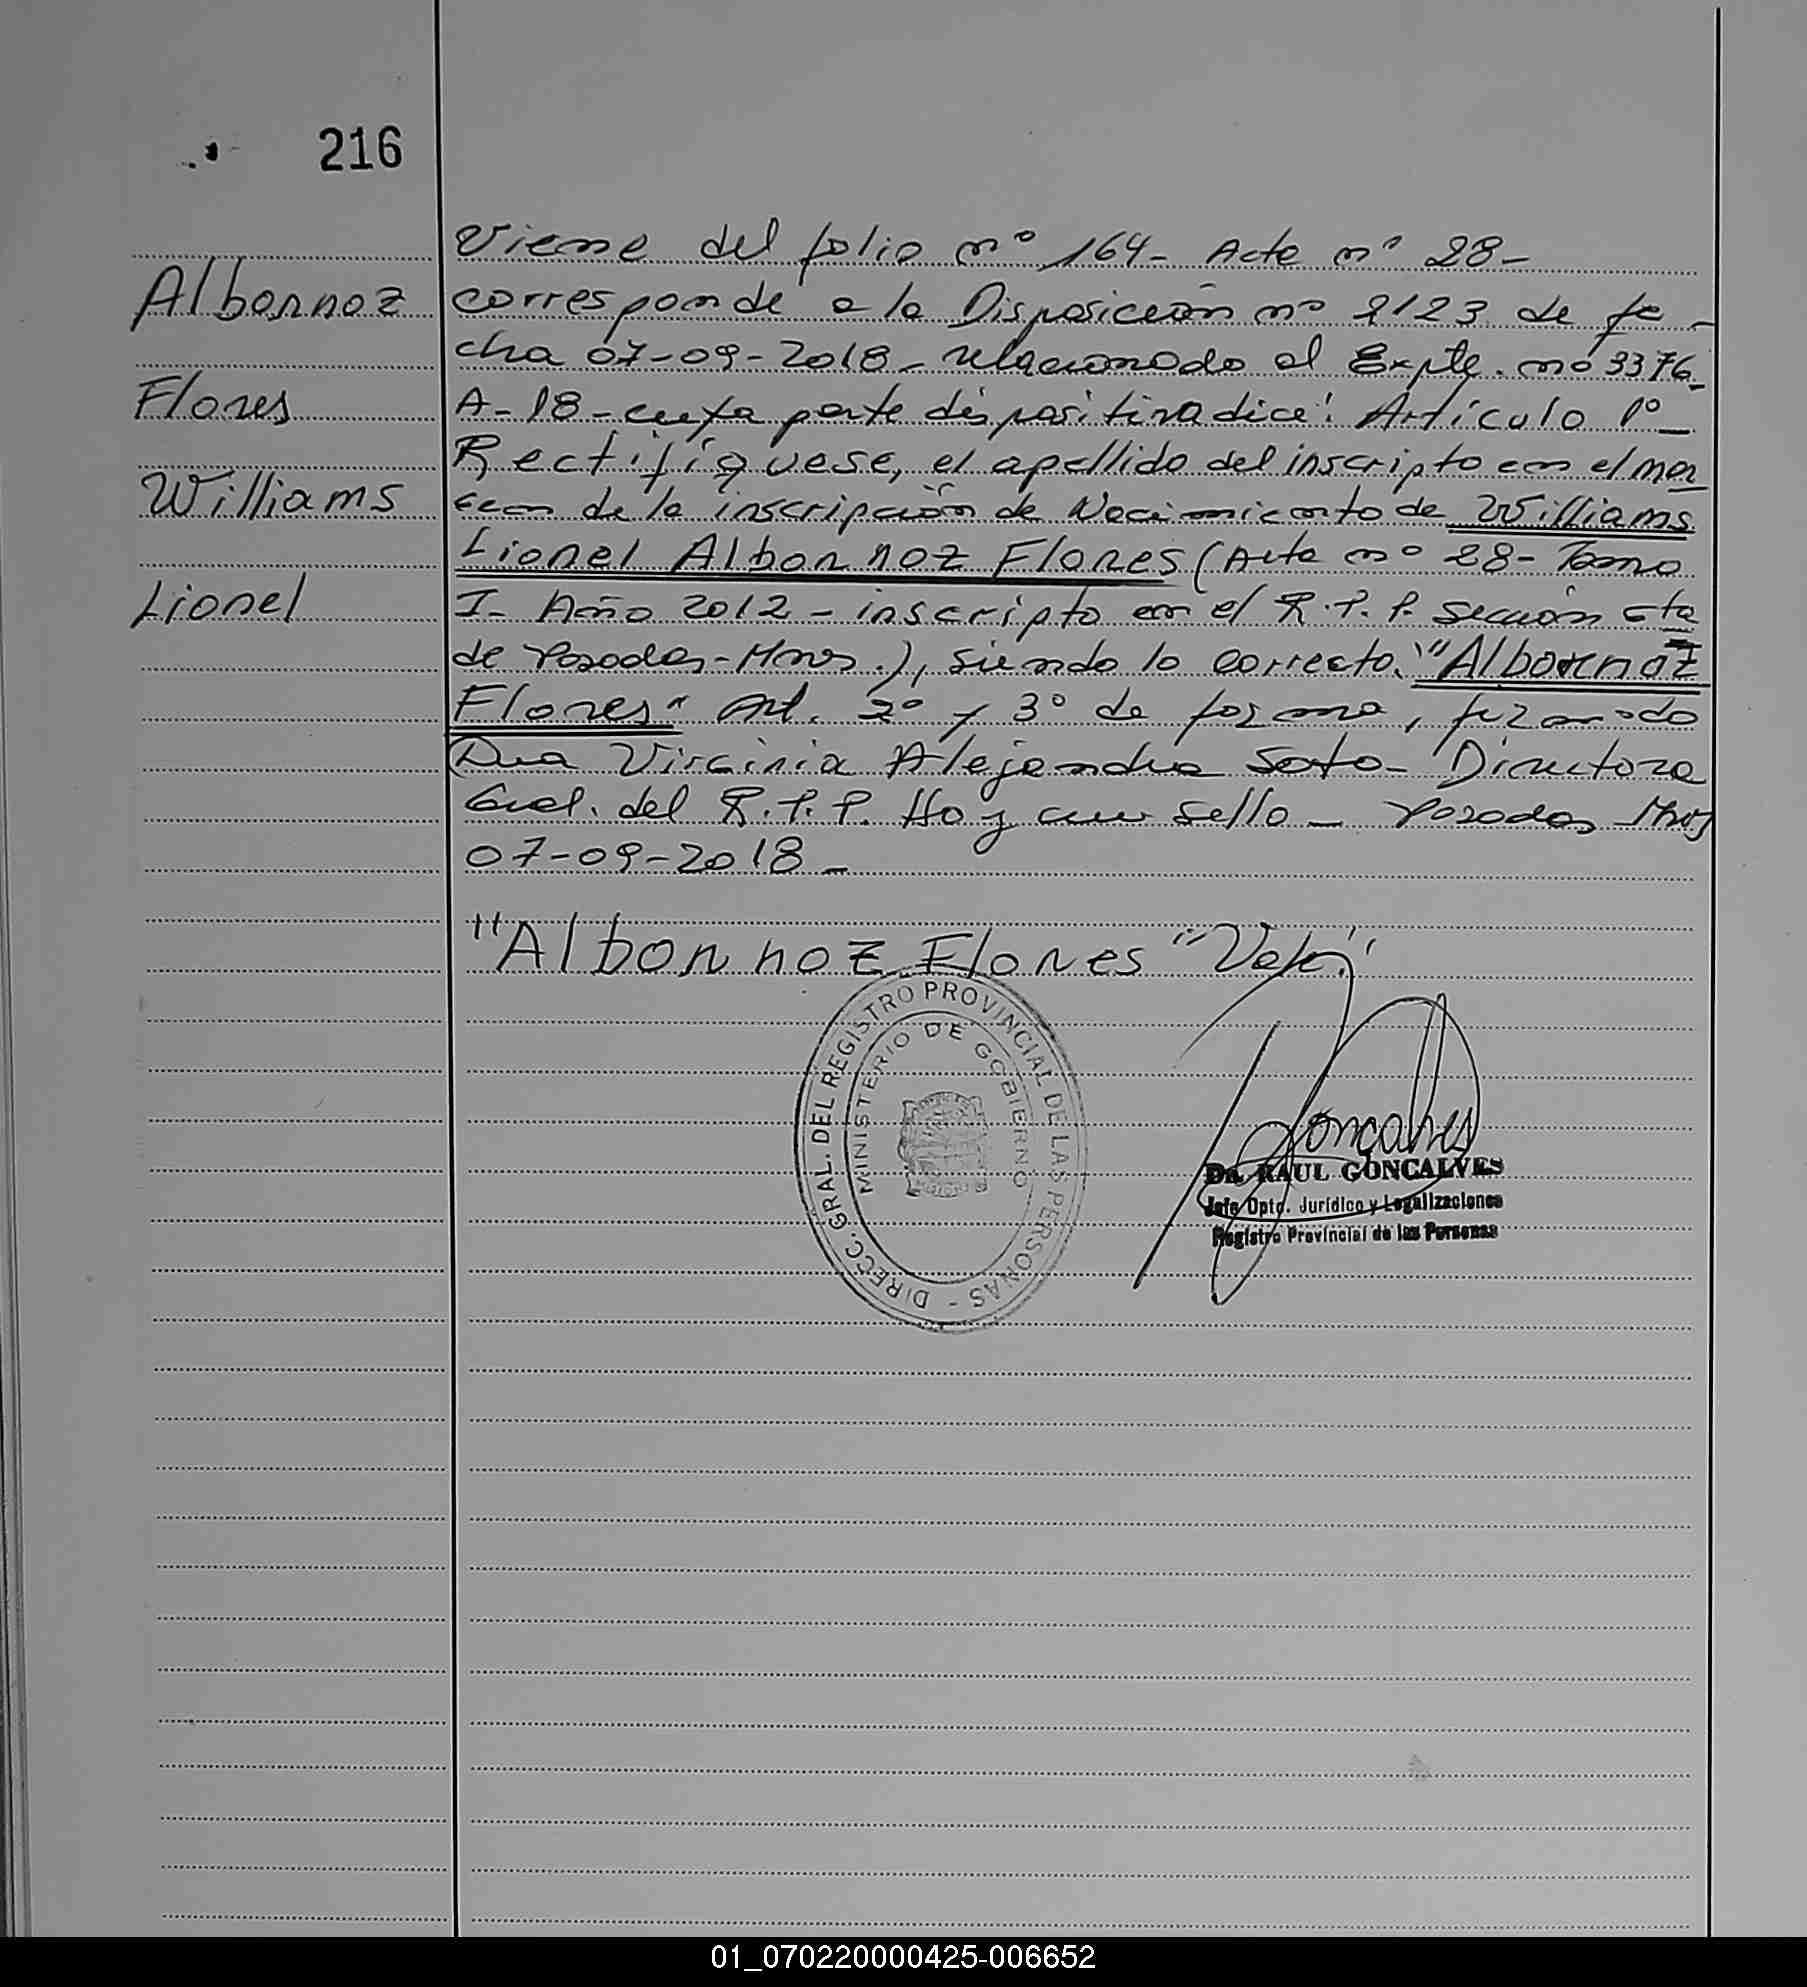 216
Albornoz
Flores
Williams
Lionel
Viene del folio nº 164- Acta nº 28-
corresponde a la Disposición nº 2123 de fe-
cha 07-09-2018- relacionado al Expte. nº 3376-
A-18- cuya parte dispositiva dice: Artículo 1º-
Rectifíquese, el apellido del inscripto en el mar
gen de la inscripción de Nacimiento de Williams
Lionel Albornoz Flores (Acta nº 28- Tomo
I- Año 2012- inscripto en el R.P.P. sección 5ta
de Posadas-Mnes.), siendo lo correcto "Albornoz
Flores" Art. 2º y 3º de forma, firmado
Dra Virginia Alejandra Soto- Directora
Gral. del R.P.P. Hay un sello- Posadas Mnes
07-09-2018-
"Albornoz Flores" "Vale"
DIRECC. GRAL. DEL REGISTRO PROVINCIAL DE LAS PERSONAS -
MINISTERIO DE GOBIERNO
Goncalves
Dr. RAUL GONCALVES
Jefe Dpto. Jurídico y Legalizaciones
Registro Provincial de las Personas
01_070220000425-006652